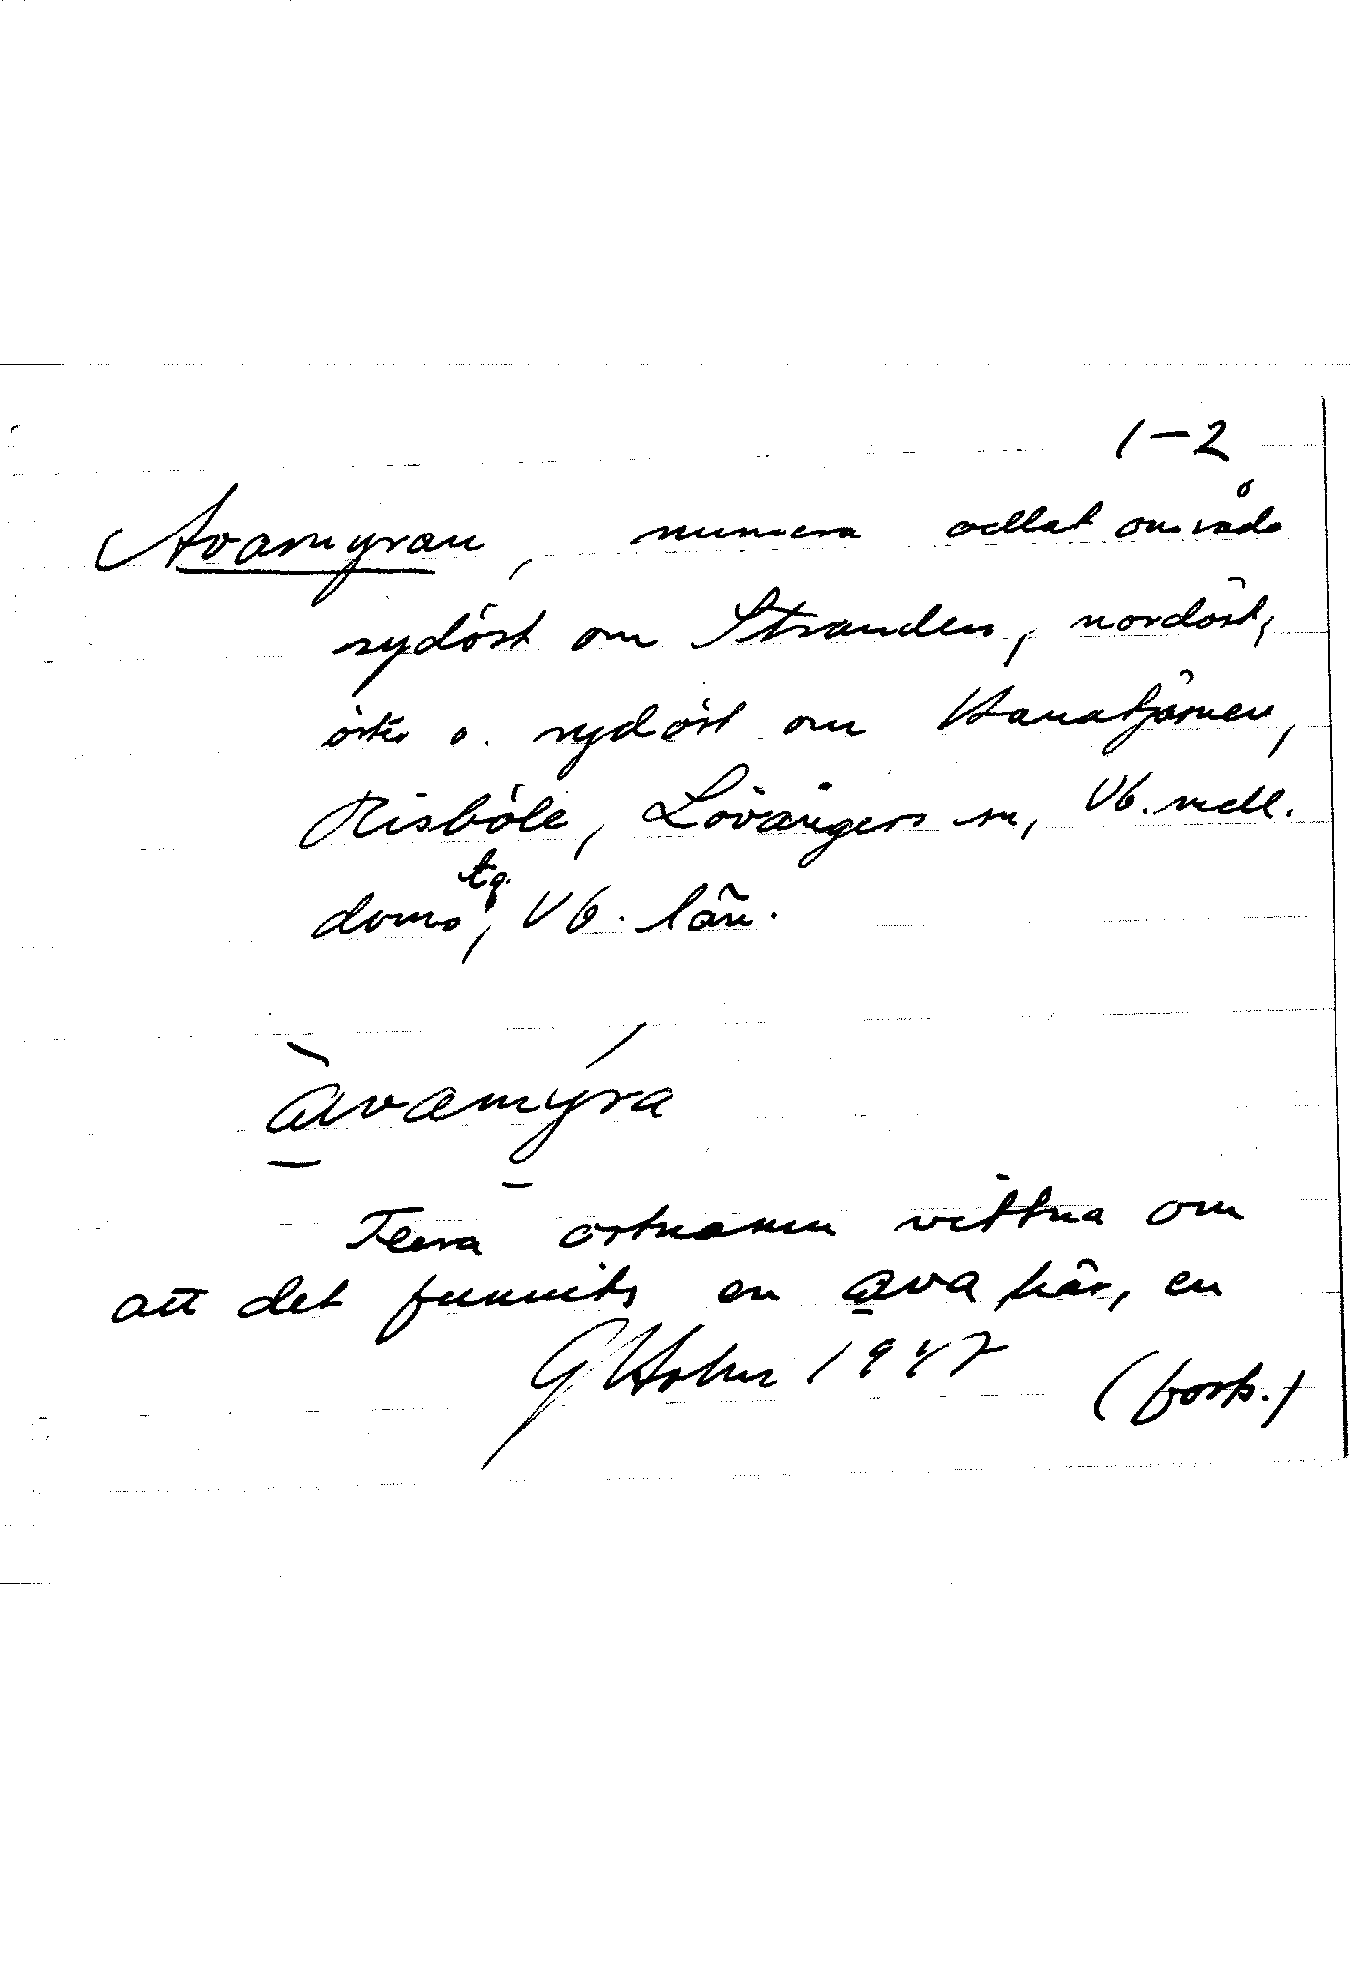 1–2
Avamyran, numera odlat område
sydöst om Stranden, nordöst,
öster o. sydöst om Hanatjärnen,
Risböle, Lövångers sn, Vb. mell.
doms tg., Vb. län.
àvamýra
Flera ortnamn vittna om
att det funnits en ava här, en
G Holm 1947
(forts.)